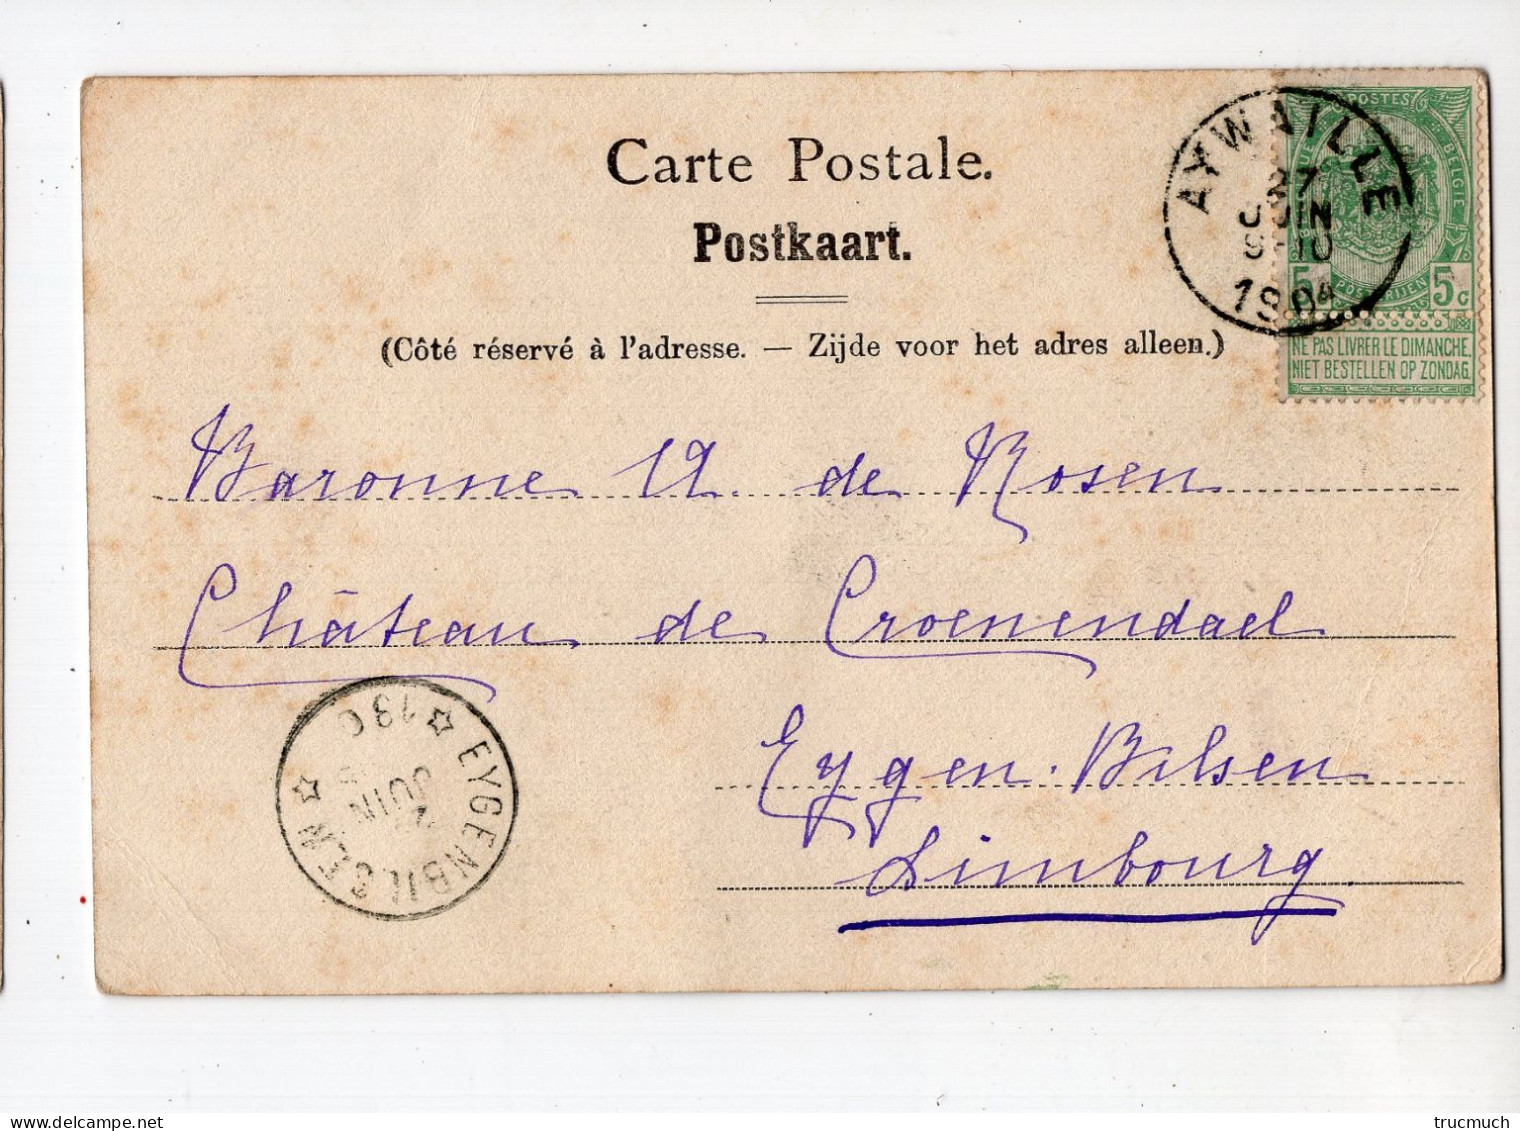 Carte Postale.
Postkaart.
(Côté réservé à l'adresse. — Zijde voor het adres alleen.)
AYWAILLE
27
JUIN
9-10
1904
POSTES
BELGIE
5 5c
POSTERIJEN
NE PAS LIVRER LE DIMANCHE
NIET BESTELLEN OP ZONDAG
Baronne A. de Rosen
Château de Croenendael
Eygen-Bilsen
Limbourg
EYGENBILSEN
JUIN
trucmuch